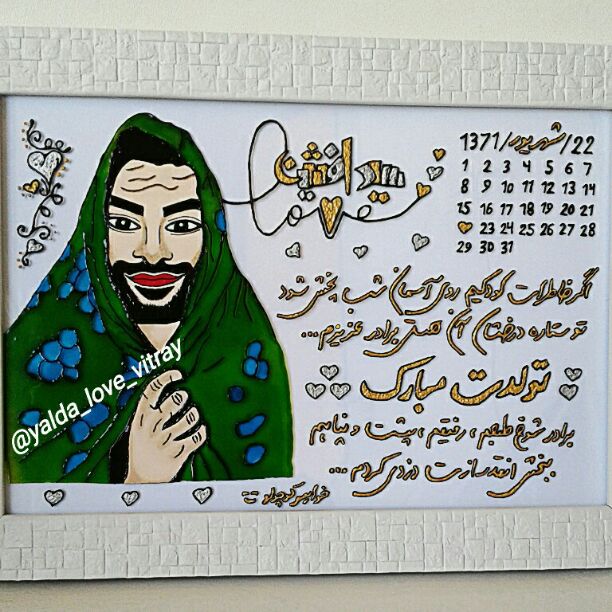 22/شهریور/1371
سید افشین
1 2 3 4 5 6 7
8 9 10 11 12 13 14
15 16 17 18 19 20 21
23 24 25 26 27 28
29 30 31
اگر خاطرات کودکیم روی آسمان شب پخش شود
تو ستاره درخشان آن هستی برادر عزیزم...
تولدت مبارک
برادر شوخ طبعم ، رفیقم ، پشت و پناهم
ببخش انقدر ازت دزدی کردم ...
خواهر کوچولوت
@yalda_love_vitray